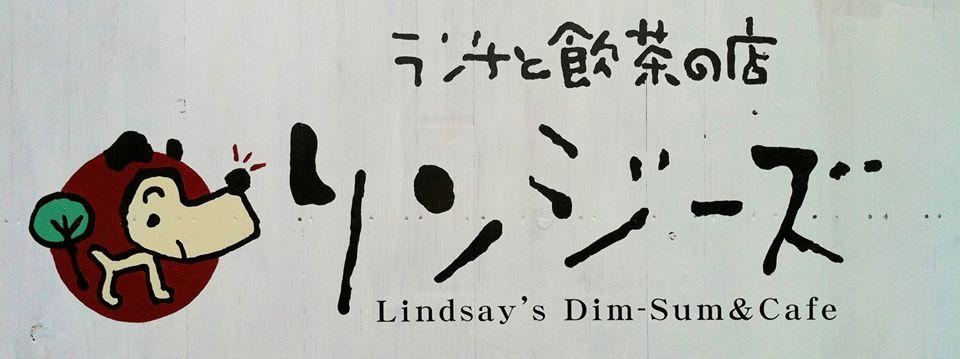 ランチと飲茶の店
リンジーズ
Lindsay's Dim-Sum&Cafe